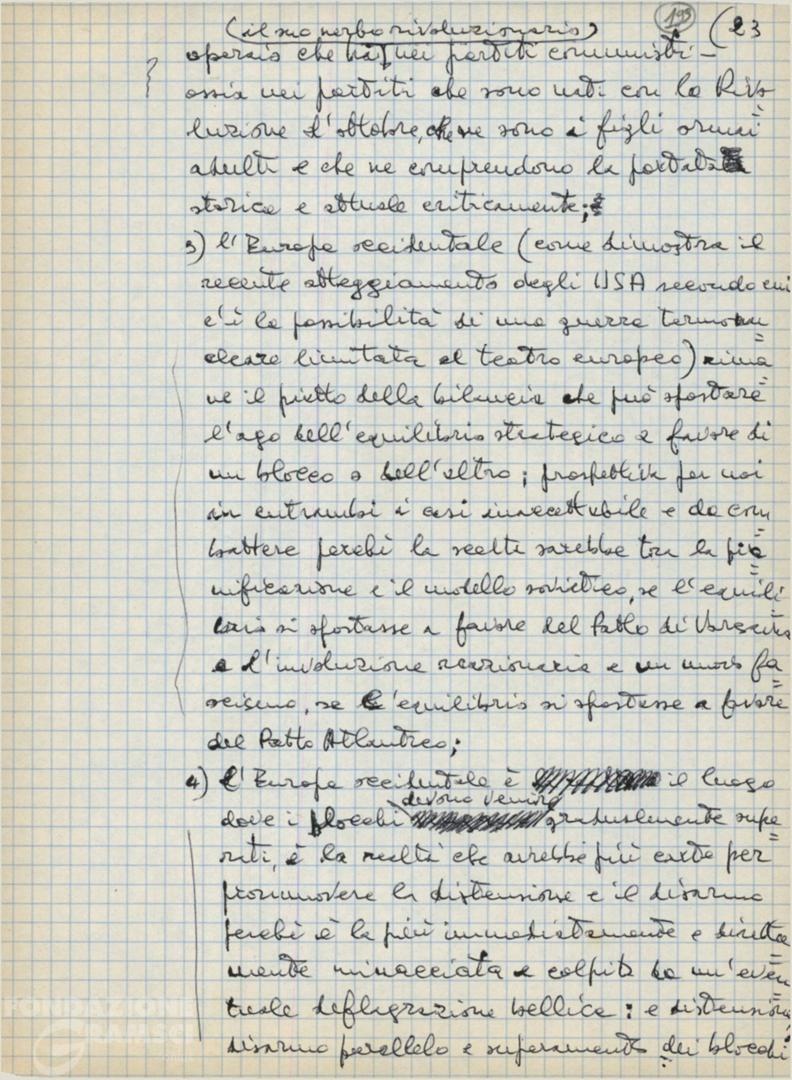 193 (23
(il suo nerbo rivoluzionario)
operaio che ha nei partiti comunisti –
ossia nei partiti che sono nati con la Rivo
luzione d'ottobre, che ne sono i figli ormai
adulti e che ne comprendono la portata
storica e attuale criticamente;
3) l'Europa occidentale (come dimostra il
recente atteggiamento degli USA secondo cui
c'è la possibilità di una guerra termonu=
cleare limitata al teatro europeo) rima=
ne il piatto della bilancia che può spostare
l'ago dell'equilibrio strategico a favore di
un blocco o dell'altro; prospettiva per noi
in entrambi i casi inaccettabile e da com
battere perché la scelta sarebbe tra la pia=
nificazione e il modello sovietico, se l'equili=
brio si spostasse a favore del Patto di Varsavia
e l'involuzione reazionaria e un nuovo fa=
scismo, se l'equilibrio si spostasse a favore
del Patto Atlantico;
4) l'Europa occidentale è il luogo
devono venire
dove i blocchi gradualmente supe=
rati, è la realtà che avrebbe più carte per
promuovere la distensione e il disarmo
perché è la più immediatamente e diretta=
mente minacciata e colpita da un'even=
tuale deflagrazione bellica: e distensione,
disarmo parallelo e superamento dei blocchi
FONDAZIONE
GRAMSCI